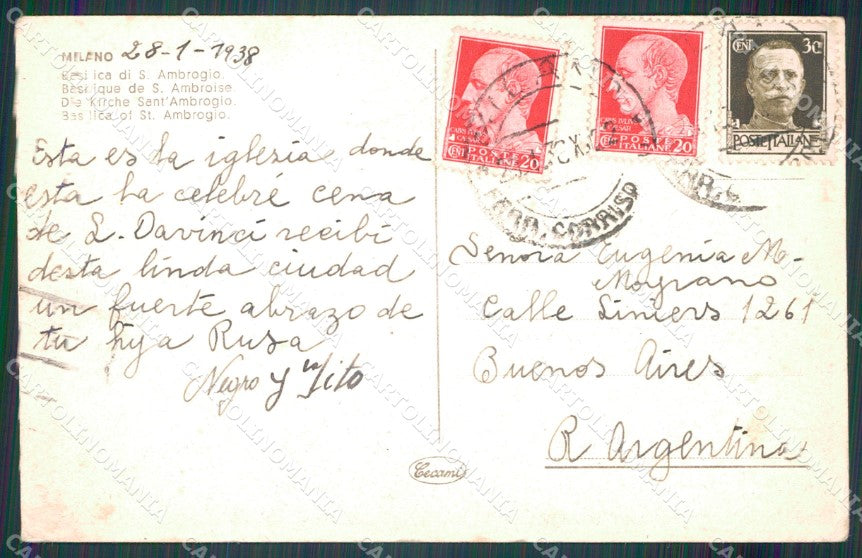 MILANO 28-1-1938
Basilica di S. Ambrogio.
Basilique de S. Ambroise.
Die Kirche Sant'Ambrogio.
Basilica of St. Ambrogio.
Esta es la iglesia donde
esta la celebré cena
de L. Davinci recibi
desta linda ciudad
un fuerte abrazo de
tu hija Rusa
Negro y Tito
CENT 20
POSTE
ITALIANE
CENT 20
POSTE
ITALIANE
CENT. 30
POSTE ITALIANE
MILANO
FERR. CORRISP
Senora Eugenia M.
Moyrano
Calle Liniers 1261
Buenos Aires
R Argentina
Cecami
CARTOLINOMANIA